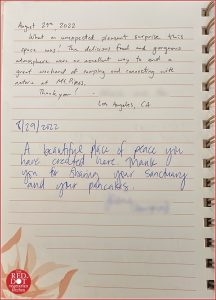 August 29th 2022
What an unexpected pleasant surprise this
space was! The delicious food and gorgeous
atmosphere were an excellent way to end a
great weekend of camping and connecting with
nature at Mt. Pinos.
Thank you!
Los Angeles, CA
8/29/2022
A beautiful place of peace you
have created here. Thank
you for sharing your sanctuary
and your pancakes.
RED
DOT
VEGETARIAN
KITCHEN